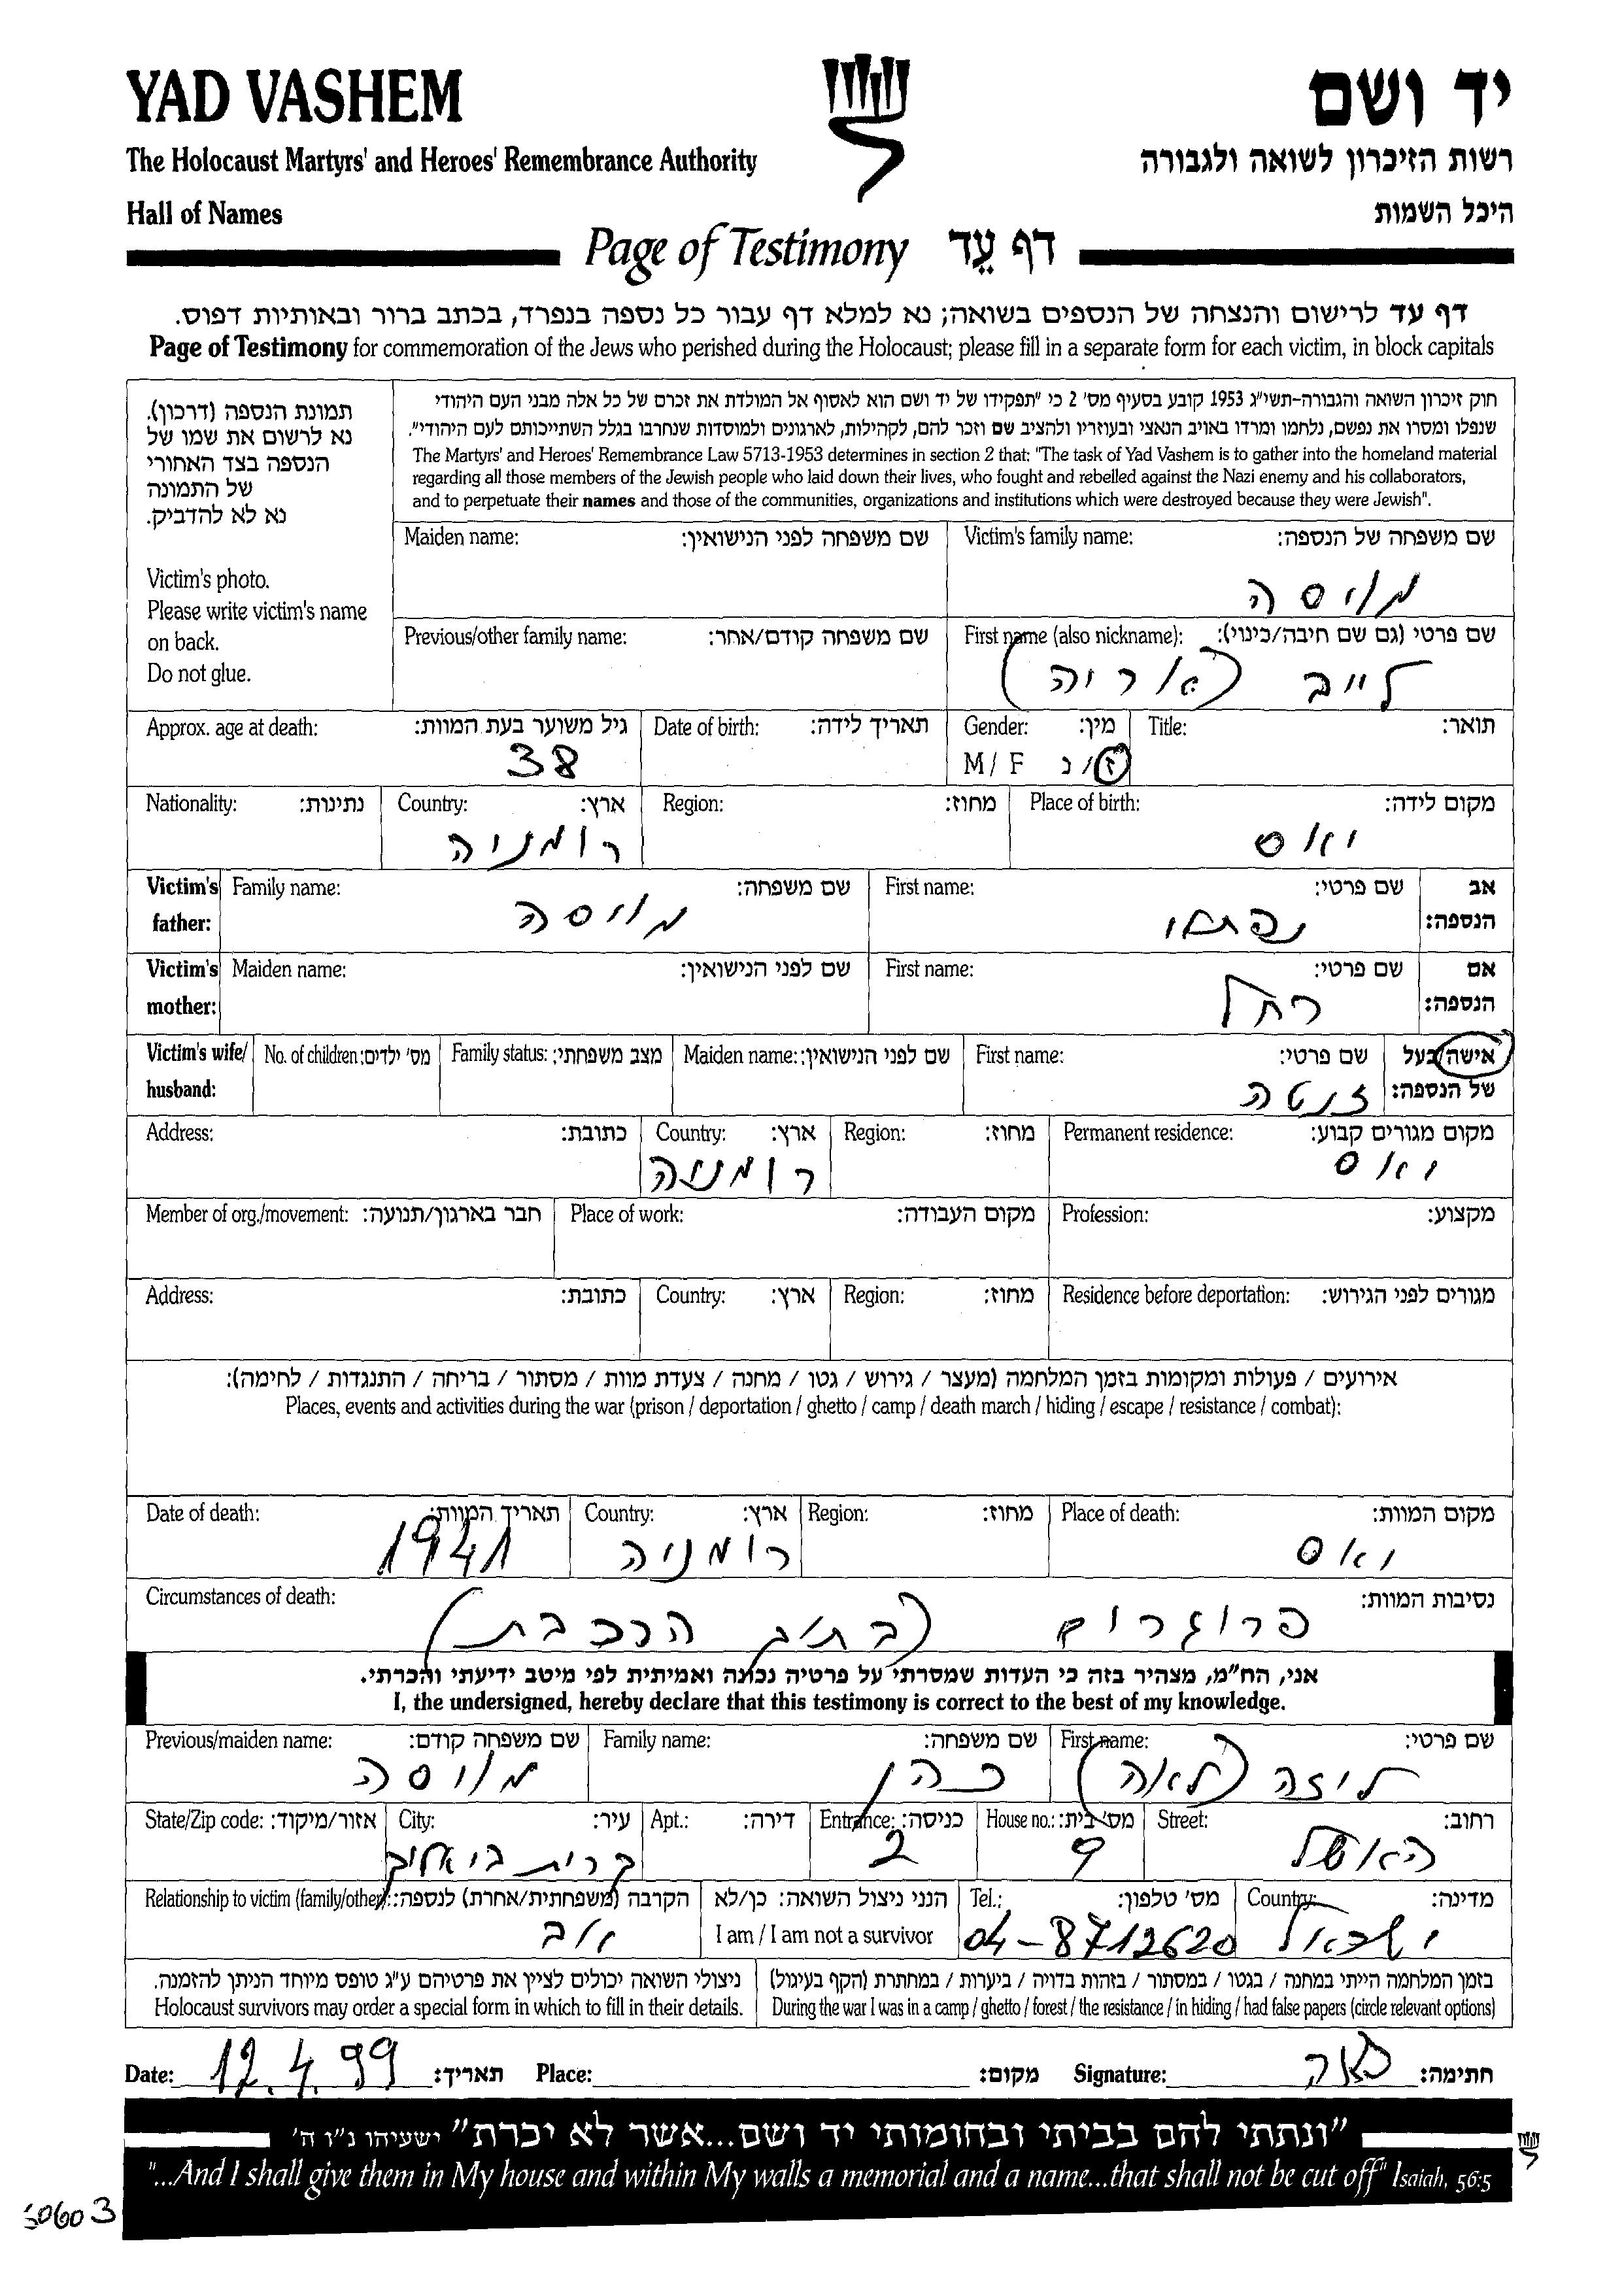 YAD VASHEM
יד ושם
The Holocaust Martyrs' and Heroes' Remembrance Authority
רשות הזיכרון לשואה ולגבורה
Hall of Names
היכל השמות
Page of Testimony דף עֵד
דף עד לרישום והנצחה של הנספים בשואה; נא למלא דף עבור כל נספה בנפרד, בכתב ברור ובאותיות דפוס.
Page of Testimony for commemoration of the Jews who perished during the Holocaust; please fill in a separate form for each victim, in block capitals
תמונת הנספה (דרכון).
נא לרשום את שמו של
הנספה בצד האחורי
של התמונה
נא לא להדביק.
Victim's photo.
Please write victim's name
on back.
Do not glue.
חוק זיכרון השואה והגבורה-תשי"ג 1953 קובע בסעיף מס' 2 כי "תפקידו של יד ושם הוא לאסוף אל המולדת את זכרם של כל אלה מבני העם היהודי
שנפלו ומסרו את נפשם, נלחמו ומרדו באויב הנאצי ובעוזריו ולהציב שם וזכר להם, לקהילות, לארגונים ולמוסדות שנחרבו בגלל השתייכותם לעם היהודי".
The Martyrs' and Heroes' Remembrance Law 5713-1953 determines in section 2 that: "The task of Yad Vashem is to gather into the homeland material
regarding all those members of the Jewish people who laid down their lives, who fought and rebelled against the Nazi enemy and his collaborators,
and to perpetuate their names and those of the communities, organizations and institutions which were destroyed because they were Jewish".
Victim's family name: שם משפחה של הנספה:
מויסה
Maiden name: שם משפחה לפני הנישואין:
First name (also nickname): שם פרטי (גם שם חיבה/כינוי):
לייב (אריה)
Previous/other family name: שם משפחה קודם/אחר:
Title: תואר:
Gender: מין:
M / F ז/נ
Date of birth: תאריך לידה:
Approx. age at death: גיל משוער בעת המוות:
38
Place of birth: מקום לידה:
יאס
Region: מחוז:
Country: ארץ:
רומניה
Nationality: נתינות:
Victim's father: אב הנספה:
First name: שם פרטי:
נפתלי
Family name: שם משפחה:
מויסה
Victim's mother: אם הנספה:
First name: שם פרטי:
רחל
Maiden name: שם לפני הנישואין:
Victim's wife/ husband: אישה/בעל של הנספה:
First name: שם פרטי:
ז'נטה
Maiden name: שם לפני הנישואין:
Family status: מצב משפחתי:
No. of children: מס' ילדים:
Permanent residence: מקום מגורים קבוע:
יאס
Region: מחוז:
Country: ארץ:
רומניה
Address: כתובת:
Profession: מקצוע:
Place of work: מקום העבודה:
Member of org./movement: חבר בארגון/תנועה:
Residence before deportation: מגורים לפני הגירוש:
Region: מחוז:
Country: ארץ:
Address: כתובת:
אירועים / פעולות ומקומות בזמן המלחמה (מעצר / גירוש / גטו / מחנה / צעדת מוות / מסתור / בריחה / התנגדות / לחימה):
Places, events and activities during the war (prison / deportation / ghetto / camp / death march / hiding / escape / resistance / combat):
Place of death: מקום המוות:
יאס
Region: מחוז:
Country: ארץ:
רומניה
Date of death: תאריך המוות:
1941
Circumstances of death: נסיבות המוות:
פרוגרום (בתוך הרכבת)
אני, הח"מ, מצהיר בזה כי העדות שמסרתי על פרטיה נכונה ואמיתית לפי מיטב ידיעתי והכרתי.
I, the undersigned, hereby declare that this testimony is correct to the best of my knowledge.
First name: שם פרטי:
ליזה (לאה)
Family name: שם משפחה:
כהן
Previous/maiden name: שם משפחה קודם:
מויסה
Street: רחוב:
האשל
House no.: מס' בית:
9
Entrance: כניסה:
2
Apt.: דירה:
City: עיר:
קרית ביאליק
State/Zip code: אזור/מיקוד:
Country: מדינה:
ישראל
Tel.: מס' טלפון:
04-8712620
הנני ניצול השואה: כן/לא
I am / I am not a survivor
Relationship to victim (family/other): הקרבה (משפחתית/אחרת) לנספה:
אב
בזמן המלחמה הייתי במחנה / בגטו / במסתור / בזהות בדויה / ביערות / במחתרת (הקף בעיגול)
During the war I was in a camp / ghetto / forest / the resistance / in hiding / had false papers (circle relevant options)
ניצולי השואה יכולים לציין את פרטיהם ע"ג טופס מיוחד הניתן להזמנה.
Holocaust survivors may order a special form in which to fill in their details.
Date: 12.4.99 תאריך: Place: מקום: Signature: חתימה:
"ונתתי להם בביתי ובחומותי יד ושם...אשר לא יכרת" ישעיהו נ"ו ה'
"...And I shall give them in My house and within My walls a memorial and a name...that shall not be cut off" Isaiah, 56:5